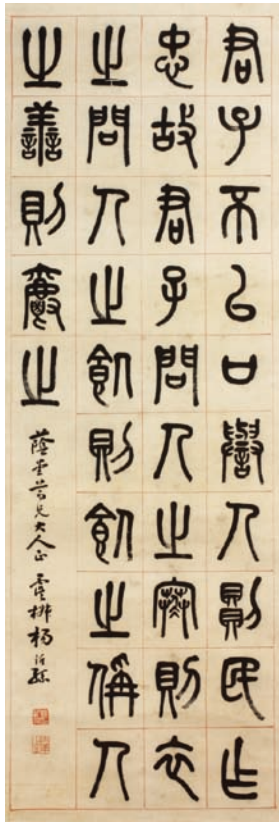 君子不以口譽人則民乍
忠故君子問人之寒則衣
之問人之飢則飤之偁人
之善則爵之
蔭堂尊兄大人正 楊沂孫